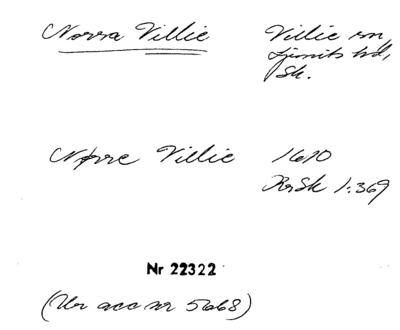 Norra Villie Villie sn,
Ljunits hd,
Sk.
Nørre Villie 1610
RrSk 1:369
Nr 22322
(Ur acc nr 5668)